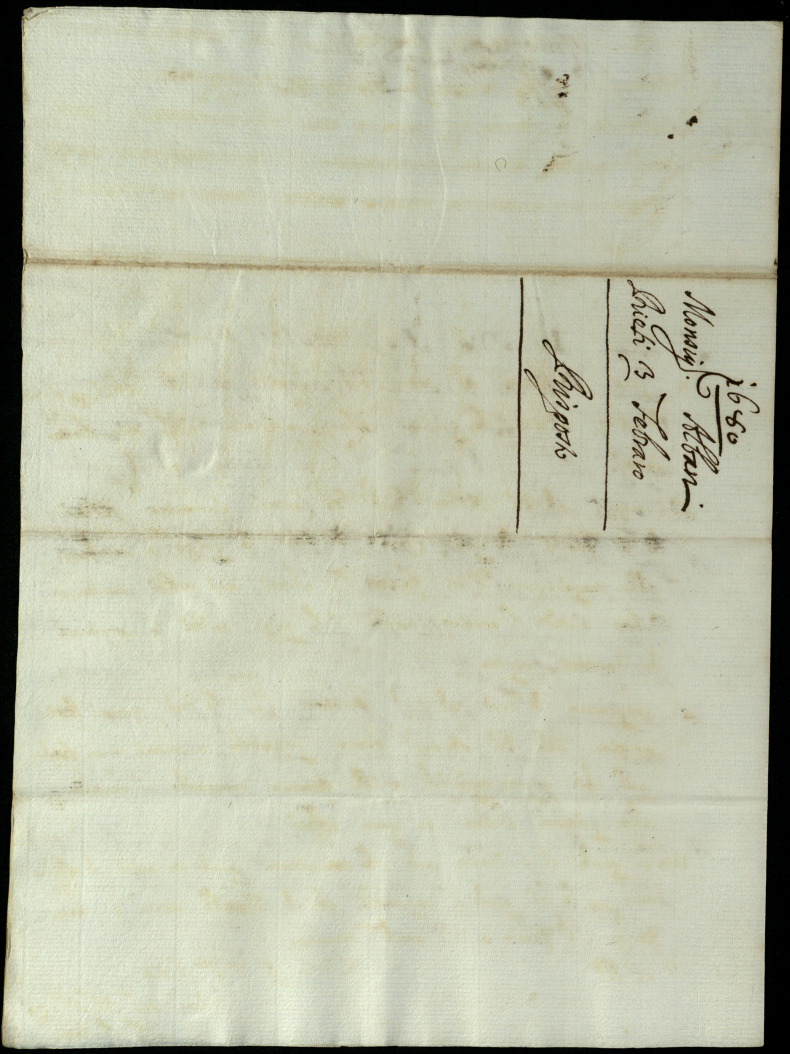 1680
Monsig.r Albani
Chieti 13 Febraro
Risposto